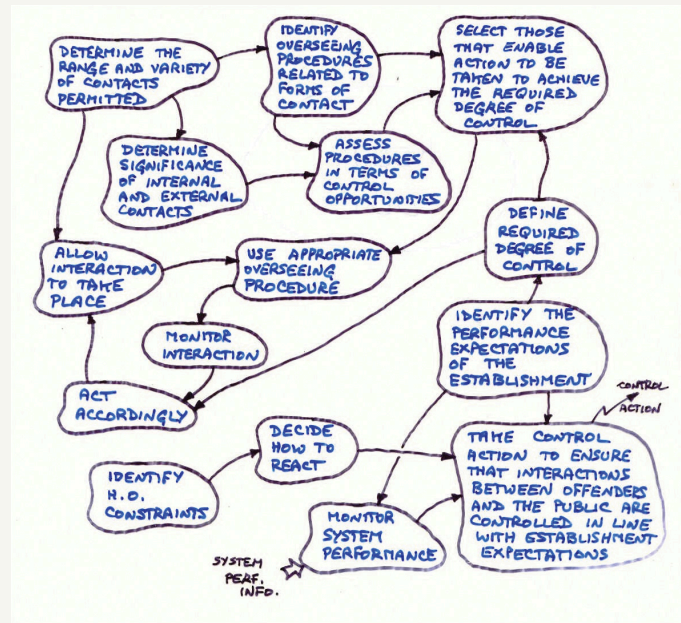 DETERMINE THE
RANGE AND VARIETY
OF CONTACTS
PERMITTED
IDENTIFY
OVERSEEING
PROCEDURES
RELATED TO
FORMS OF
CONTACT
SELECT THOSE
THAT ENABLE
ACTION TO BE
TAKEN TO ACHIEVE
THE REQUIRED
DEGREE OF
CONTROL
DETERMINE
SIGNIFICANCE
OF INTERNAL
AND EXTERNAL
CONTACTS
ASSESS
PROCEDURES
IN TERMS OF
CONTROL
OPPORTUNITIES
DEFINE
REQUIRED
DEGREE OF
CONTROL
ALLOW
INTERACTION
TO TAKE
PLACE
USE APPROPRIATE
OVERSEEING
PROCEDURE
MONITOR
INTERACTION
IDENTIFY THE
PERFORMANCE
EXPECTATIONS
OF THE
ESTABLISHMENT
ACT
ACCORDINGLY
CONTROL
ACTION
DECIDE
HOW TO
REACT
IDENTIFY
H.O.
CONSTRAINTS
TAKE CONTROL
ACTION TO ENSURE
THAT INTERACTIONS
BETWEEN OFFENDERS
AND THE PUBLIC ARE
CONTROLLED IN LINE
WITH ESTABLISHMENT
EXPECTATIONS
MONITOR
SYSTEM
PERFORMANCE
SYSTEM
PERF.
INFO.